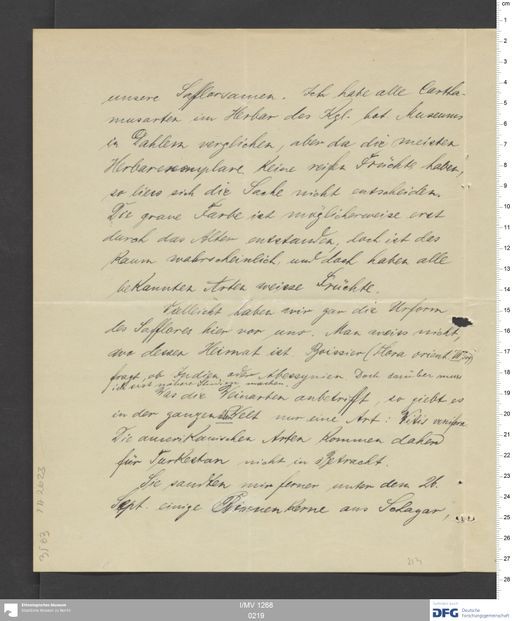 unsere Safflorsamen. Ich habe alle Cartha-
musarten im Herbar des Kgl. bot Museums
in Dahlem verglichen, aber da die meisten
Herbarexemplare keine reifen Früchte haben,
so liess sich die Sache nicht entscheiden.
Die graue Farbe ist möglicherweise erst
durch das Alter entstanden, doch ist das
kaum wahrscheinlich, und doch haben alle
bekannten Arten weisse Früchte.
Vielleicht haben wir gar die Urform
des Safflores hier vor uns. Man weiss nicht,
wo dessen Heimat ist Boissier (Flora orient
fragt, ob Indien oder Abessynien. Doch darüber muss
ich erst nähere Studien machen.
Was die Weinarten anbetrifft, so giebt es
in der ganzen alten Welt nur eine Art: Vitis vinifera
Die amerikanischen Arten kommen daher
für Turkestan nicht in Betracht.
Sie sandten mir ferner unter dem 26.
Sept. einige Birnenkerne aus Schagar,
I/MV 1268
0219
Ethnologisches Museum
Staatliche Museen zu Berlin
DFG
Deutsche
Forschungsgemeinschaft